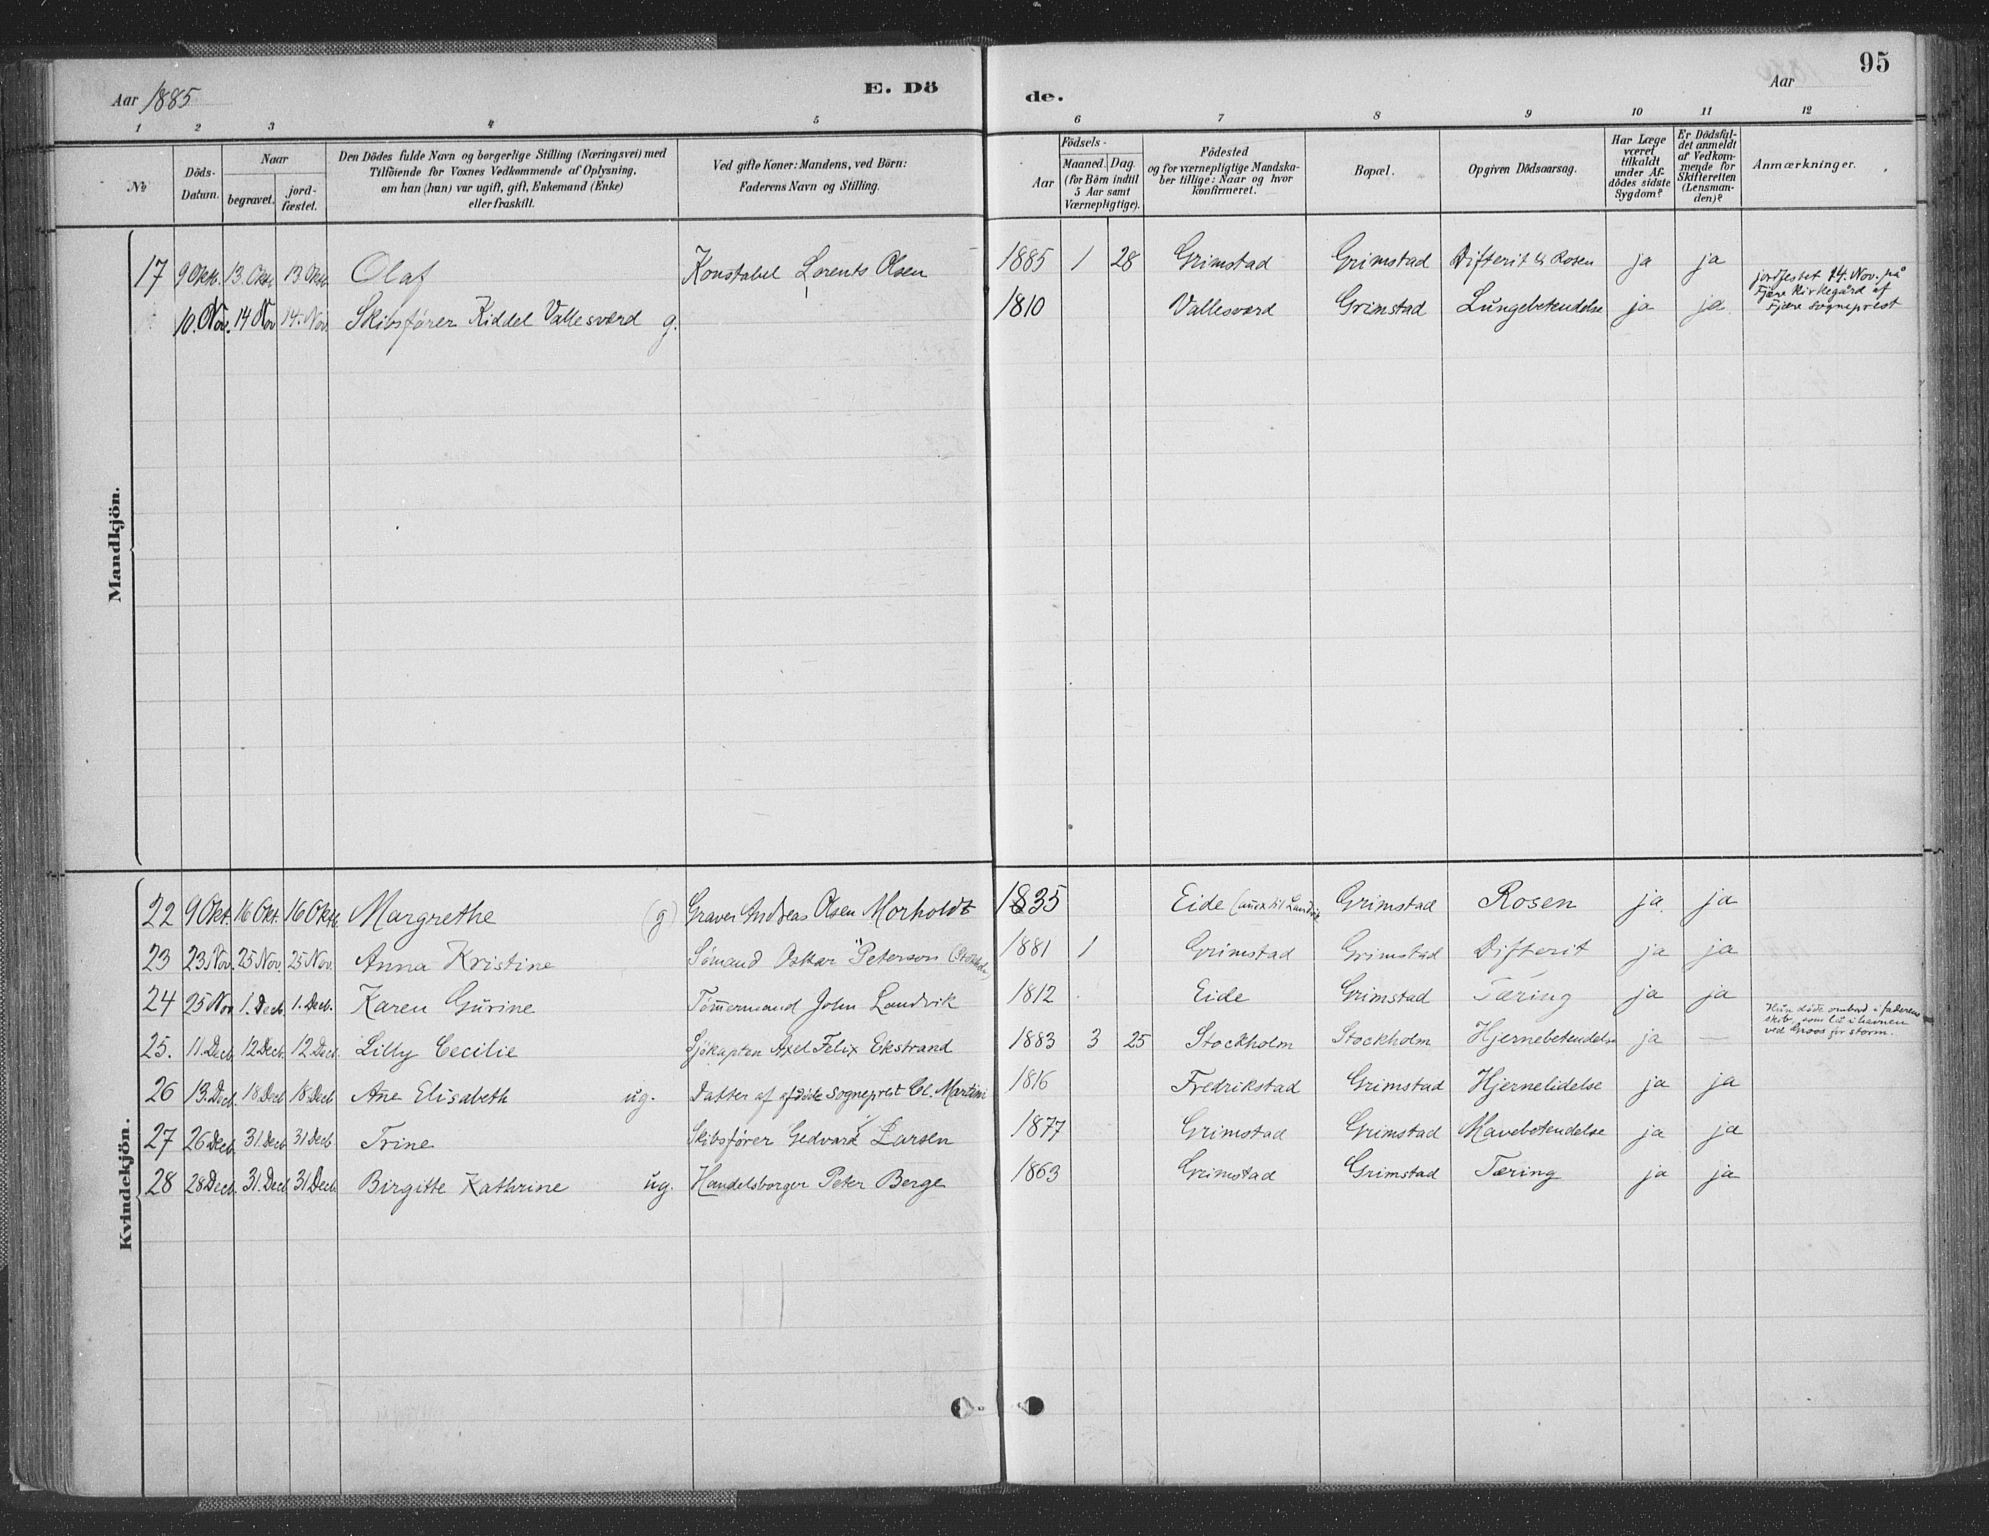 Aar 1885 E. Dö de. Aar 95
1 2 3 4 5 6 7 8 9 10 11 12
№ Döds-Datum. Naar begravet. jord-fæstet. Den Dödes fulde Navn og borgerlige Stilling (Næringsvei) med Tilföiende for Voxnes Vedkommende af Oplysning, om han (hun) var ugift, gift, Enkemand (Enke) eller fraskilt. Ved gifte Koner: Mandens, ved Börn: Faderens Navn og Stilling. Födsels- Aar Maaned. Dag. (for Börn indtil 5 Aar samt Værnepligtige). Födested og for værnepligtige Mandskaber tillige: Naar og hvor konfirmeret. Bopæl. Opgiven Dödsaarsag. Har Læge været tilkaldt under Afdödes sidste Sygdom? Er Dödsfaldet anmeldt af Vedkommende for Skifteretten (Lensmanden)? Anmærkninger.
Mandkjön.
17 9 Okt. 13 Okt. 13 Okt. Olaf Konstabel Lorents Olsen 1885 1 28 Grimstad Grimstad Difterit & Rosen ja ja
10. Nov. 14 Nov 14. Nov. Skibsfører Kiddel Vallesværd g. 1810 Vallesværd Grimstad Lungebetendelse ja ja jordfestet 14. Nov. på
Fjære Kirkegård af
Fjære Sogneprest
Kvindekjön.
22 9 Okt. 16 Okt. 16 Okt. Margrethe (g) Graver Andreas Olsen Morholdt 1835 Eide (anex til Landvik Grimstad Rosen ja ja
23 23. Nov. 25 Nov. 25 Nov. Anna Kristine Sømand Oskar Peterson 1881 1 Grimstad Grimstad Difterit ja ja
24 25 Nov 1. Decb. 1. Decb. Karen Gurine Tømmermand John Landvik 1812 Eide Grimstad Tæring ja ja
25. 11. Decb. 12 Decb. 12 Decb. Lilly Cecilie Sjökapten Axel Felix Ekstrand 1883 3 25 Stockholm Stockholm Hjernebetendelse ja — Hun døde ombord i faderens
skib, som lå i havnen
ved Groos for storm.
26 13. Decb. 18 Decb 18 Decb Ane Elisabeth ug. Datter af afdøde Sogneprest Cl. Martini 1816 Fredrikstad Grimstad Hjernelidelse ja ja
27 26 Decb. 31. Decb. 31 Decb Trine Skibsfører Gedvard Larsen 1877 Grimstad Grimstad Mavebetendelse ja ja
28 28 Decb. 31. Decb 31 Decb Birgitte Kathrine ug. Handelsborger Peter Berge 1863 Grimstad Grimstad Tæring ja ja